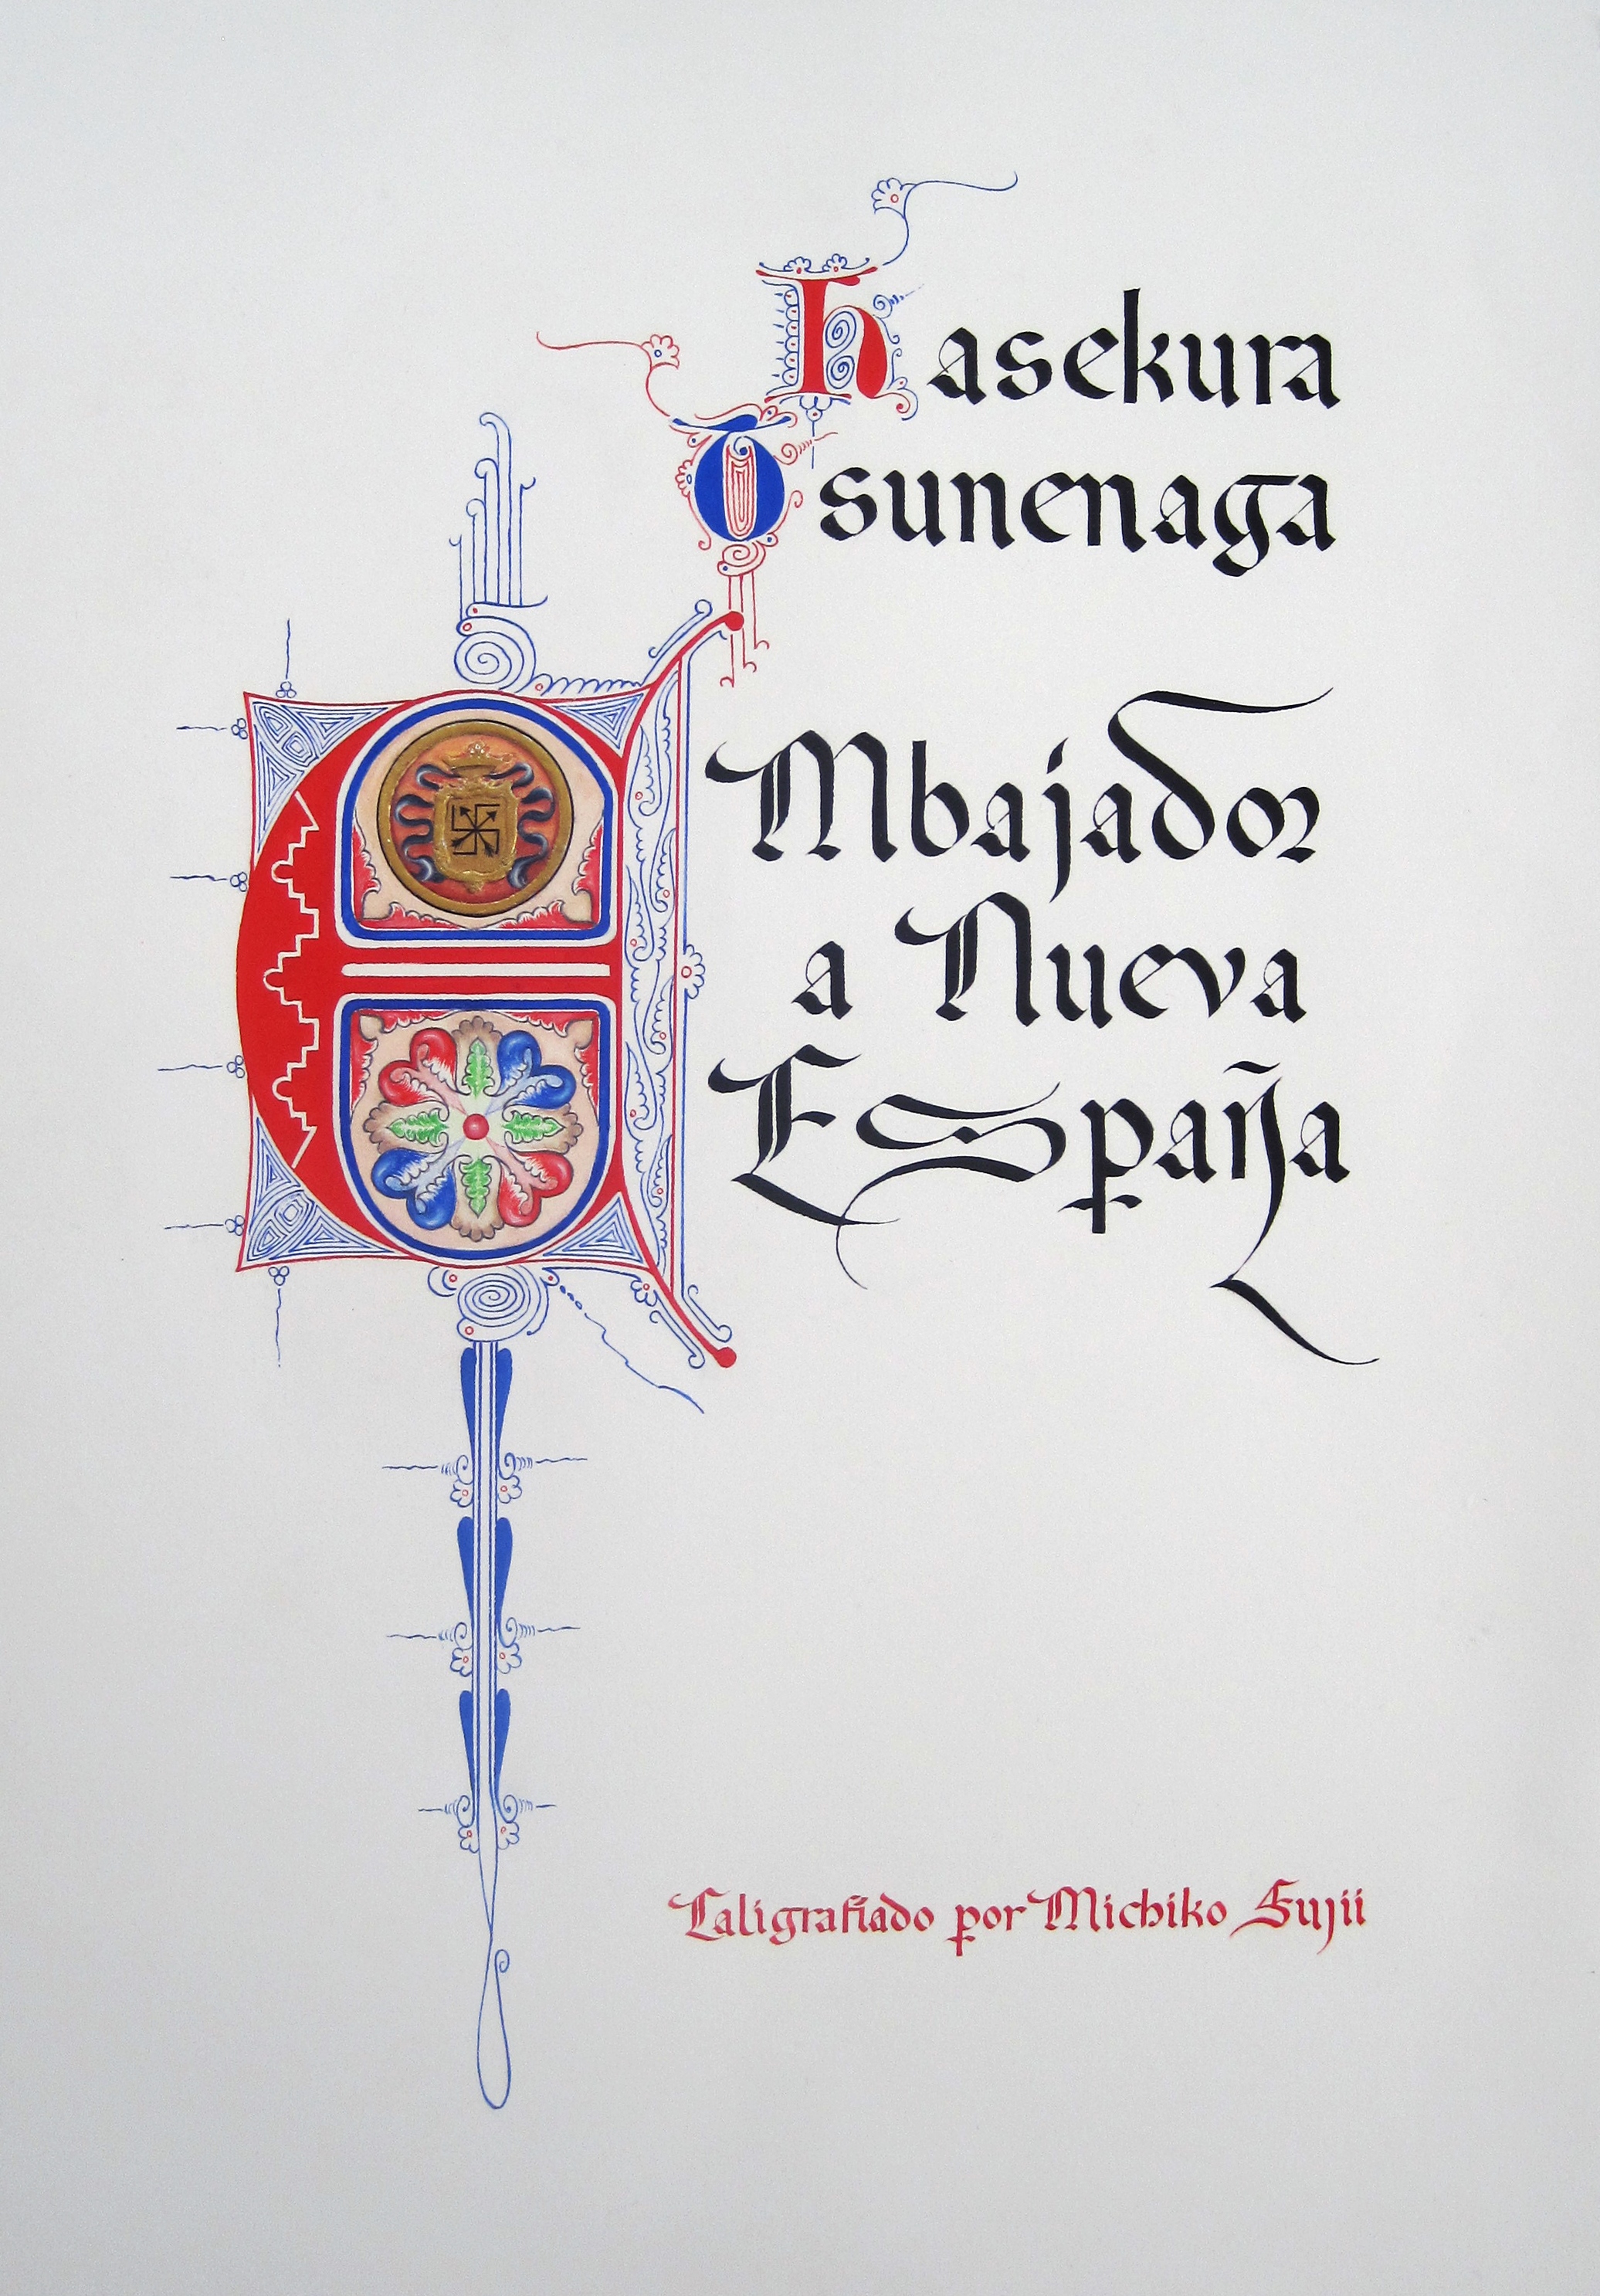 hasekura
Tsunenaga
EMbajador
a Nueva
España
Caligrafiado por Michiko Fujii